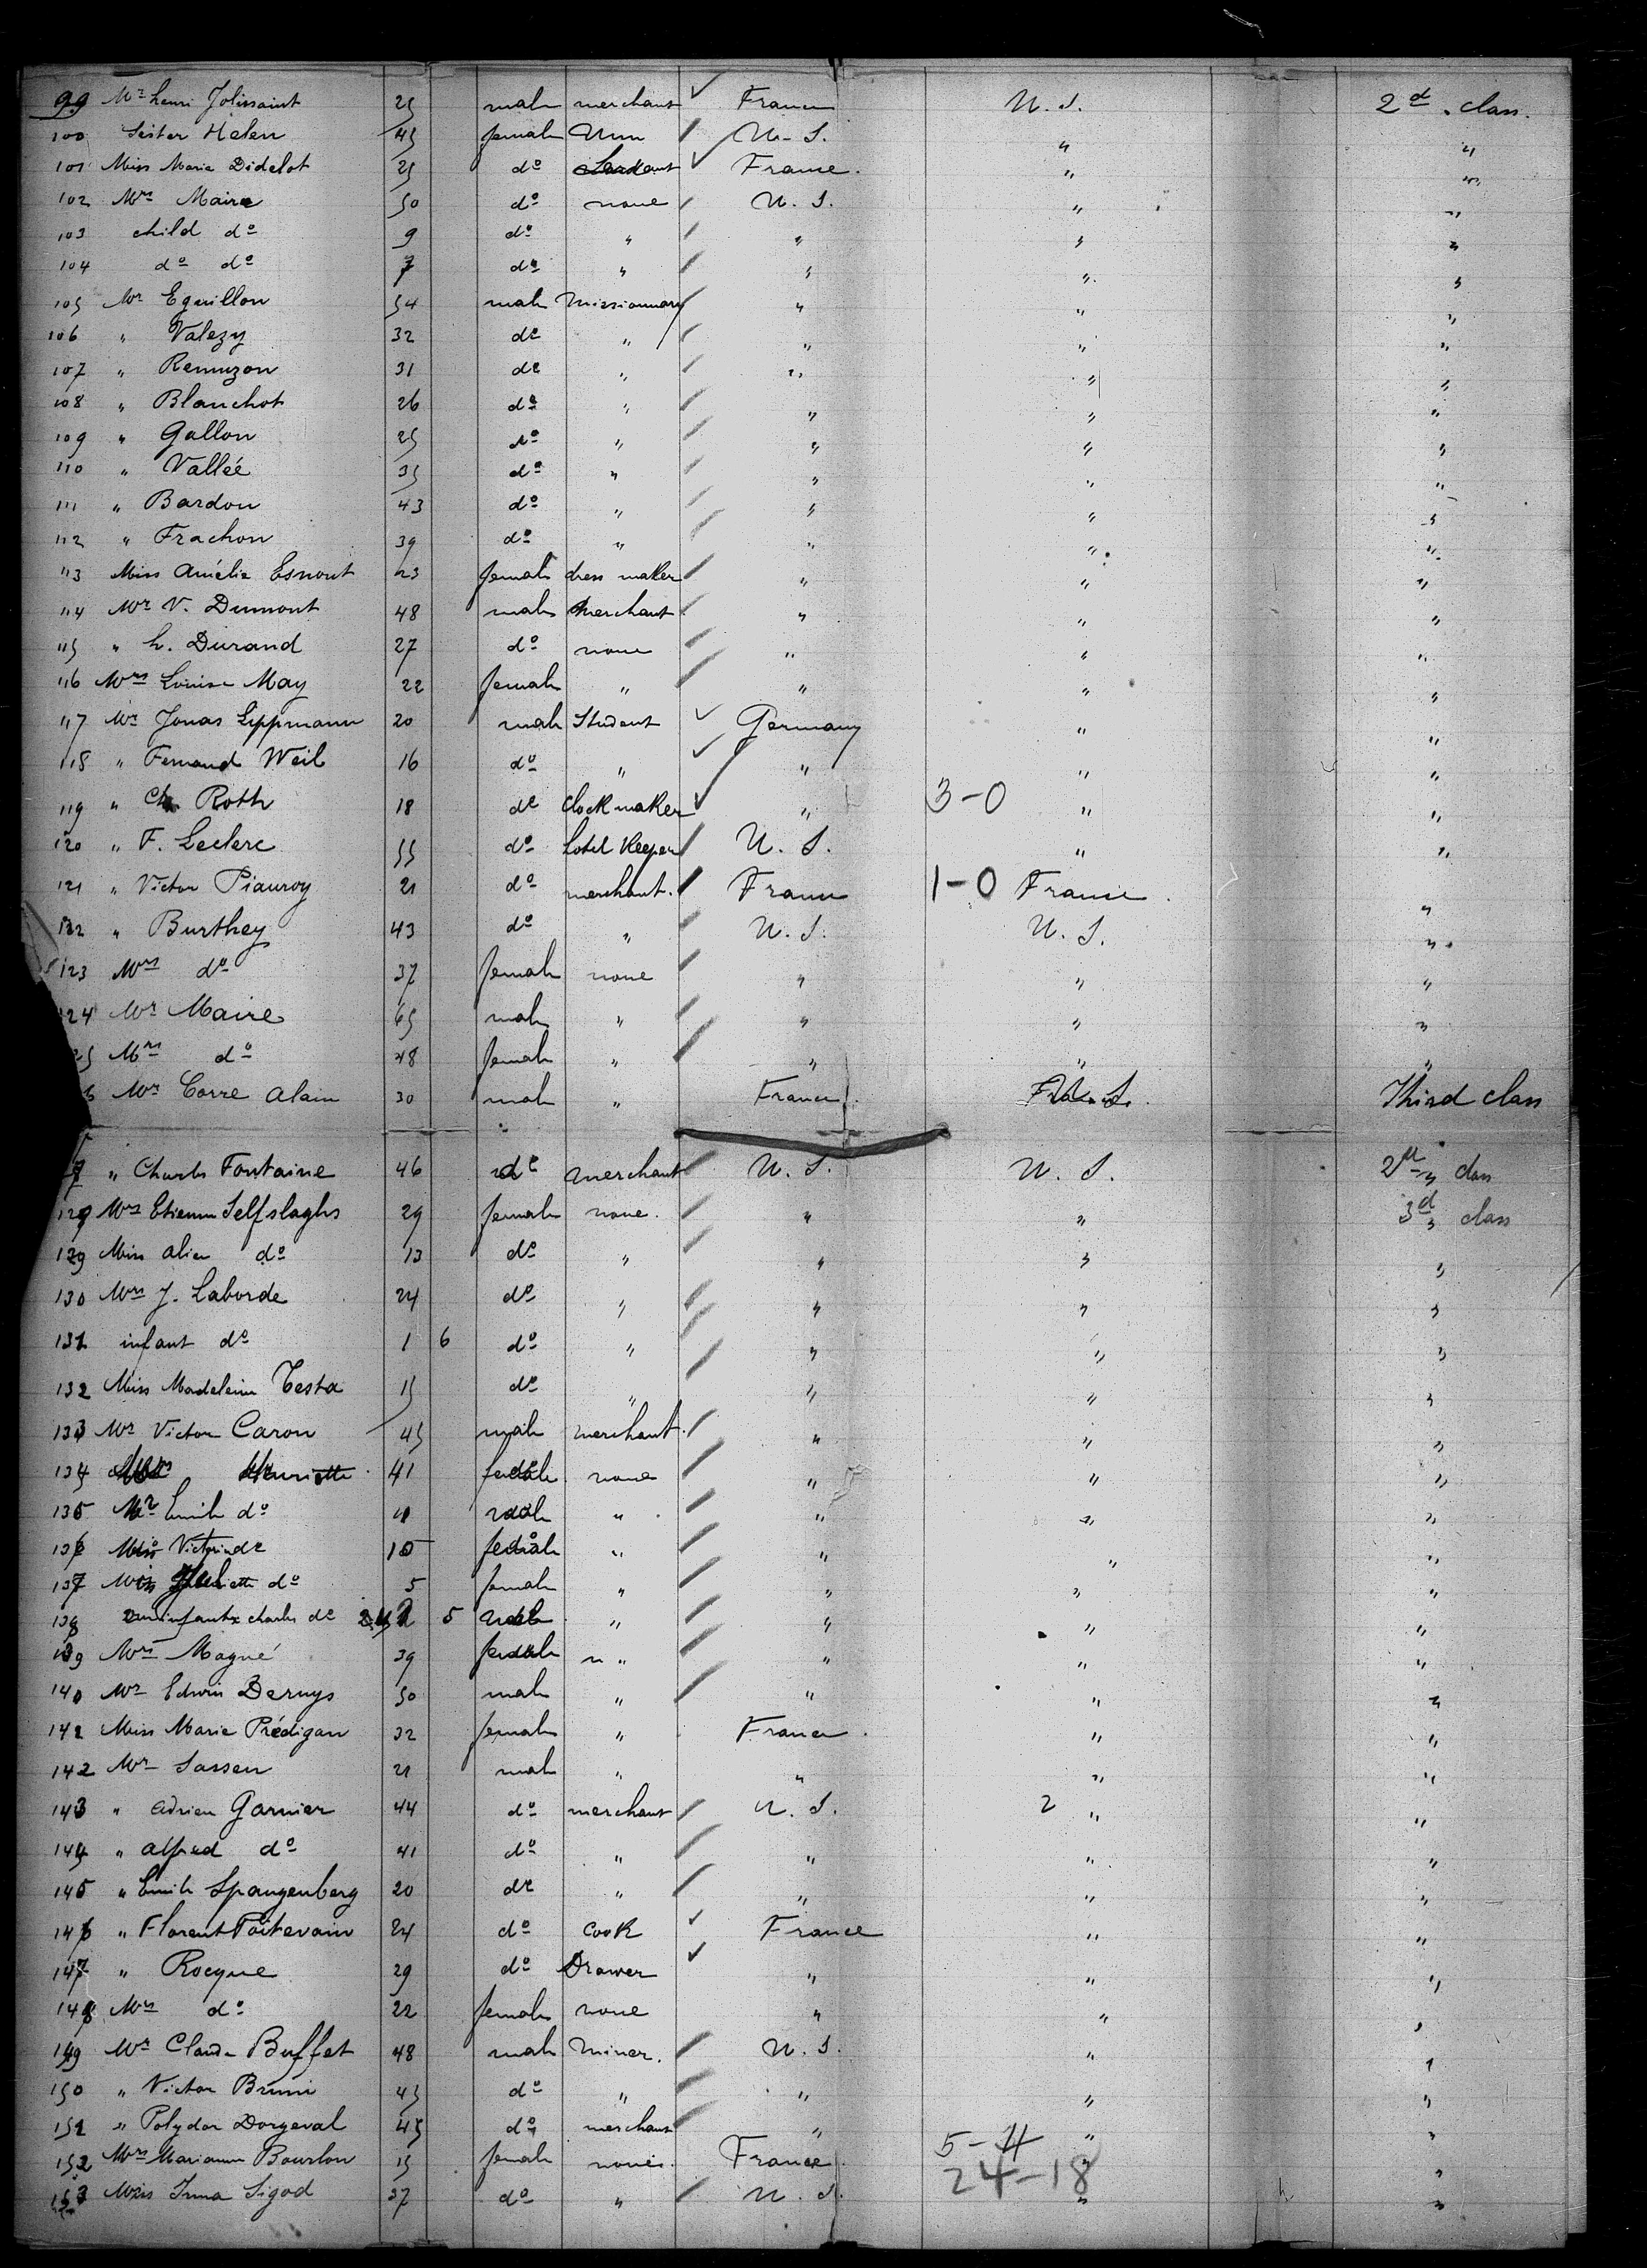 99 Mr henri Jolissaint 25 male merchant France U. S. 2d class.
100 Sister Helen 45 female Nun U. S. " "
101 Miss Marie Didelot 25 do France. " "
102 Mrs Maire 50 do none U. S. " "
103 child do 9 do " " " "
104 do do 7 do " " " "
105 Mr Eguillon 54 male Missionnary " " "
106 " Valezy 32 do " " " "
107 " Remuzon 31 do " " " "
108 " Blanchot 26 do " " " "
109 " Gallon 25 do " " " "
110 " Vallée 35 do " " " "
111 " Bardou 43 do " " " "
112 " Frachon 39 do " " " "
113 Miss Amélie Esnout 23 female dress maker " " "
114 Mr V. Dumont 48 male Merchant " " "
115 " h. Durand 27 do none " " "
116 Mrs Louise May 22 female " " " "
117 Mr Jonas Lippmann 20 male Student Germany " "
118 " Fernand Weil 16 do " " " "
119 " Ch. Roth 18 do clock maker " 3-0 " "
120 " F. Leclerc 55 do hotel Keeper U. S. " "
121 " Victor Piauroy 21 do merchant. France 1-0 France "
122 " Burthey 43 do " U. S. U. S. "
123 Mrs do 37 female none " " "
124 Mr Maire 65 male " " " "
25 Mrs do 48 female " " " "
6 Mr Corre Alain 30 male " France U. S. Third class
7 " Charles Fontaine 46 do merchant U. S. U. S. 2d class
129 Mrs Etienne Selfslaghs 29 female none. " " 3d class
129 Miss Alice do 13 do " " " "
130 Mrs J. Laborde 24 do " " " "
131 infant do 1 6 do " " " "
132 Miss Madeleine Testa 15 do " " " "
133 Mr Victor Caron 45 male merchant. " " "
134 Mrs Henriette 41 female none " " "
135 Mr Emile do 11 male " " " "
136 Miss Victorine do 10 female " " " "
137 Miss do 5 female " " " "
138 infant charles do 5 male " " " "
139 Mrs Magné 39 female " " " "
140 Mr Edwin Deruys 50 male " " " "
142 Miss Marie Prédigan 32 female " France " "
142 Mr Sassen 21 male " " " "
143 " Adrien Garnier 44 do merchant U. S. 2 " "
144 " Alfred do 41 do " " " "
145 " Emile Spangenberg 20 do " " " "
146 " Florent Poitevain 24 do cook France " "
147 " Rocque 29 do Drawer " " "
148 Mrs do 22 female none " " "
149 Mr Claude Buffet 48 male Miner. U. S. " "
150 " Victor Bruni 45 do " " " "
151 " Polydor Dorgeval 45 do merchant " " "
152 Mrs Marianne Bourlon 15 female none. France 5-4 " "
153 Miss Irma Sigod 27 do " U. S. 24-18 " "